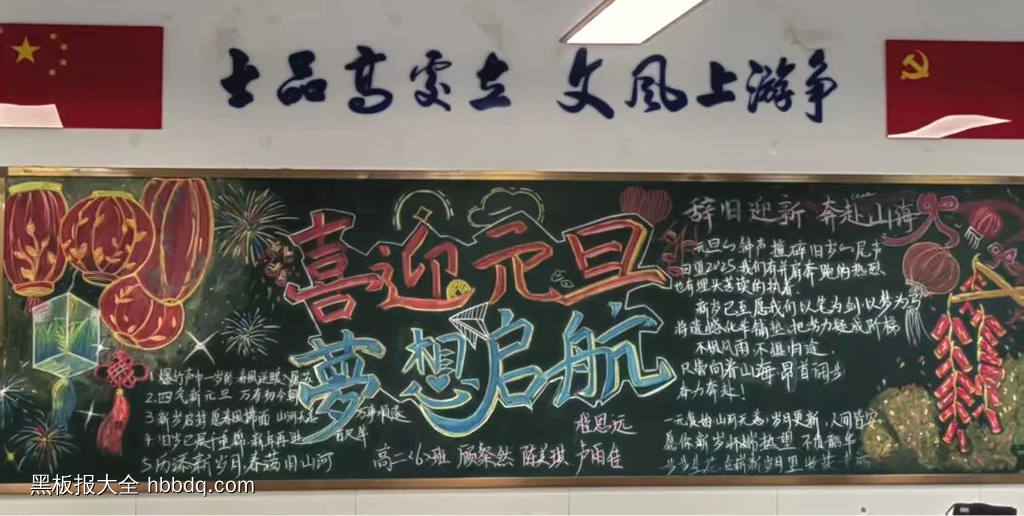 士品高处立 文风上游争
喜迎元旦
梦想启航
1.爆竹声中一岁除 春风送暖入屠苏
2.四气新元旦 万寿初今朝
3.新岁启封 愿春风拂面 山河无恙
4.旧岁已展千重锦 新年再进百尺竿
5.历添新岁月 春满旧山河
万事顺遂
程思远
高二<6>班 顾粲然 陈美琪 卢雨佳
辞旧迎新 奔赴山海
元旦的钟声撞碎旧岁的尾声
回望2025 我们有并肩奔跑的热烈
也有埋头苦读的执着
新岁已至 愿我们以笔为剑 以梦为马
将遗憾化作铺垫 把努力凝成阶梯
不惧风雨 不惧归途
只需向着山海 昂首阔步
奋力奔赴!
一元复始 山河无恙 岁月更新 人间皆安
愿你新岁 怀揣热望 不负韶华
黑板报大全 hbbdq.com